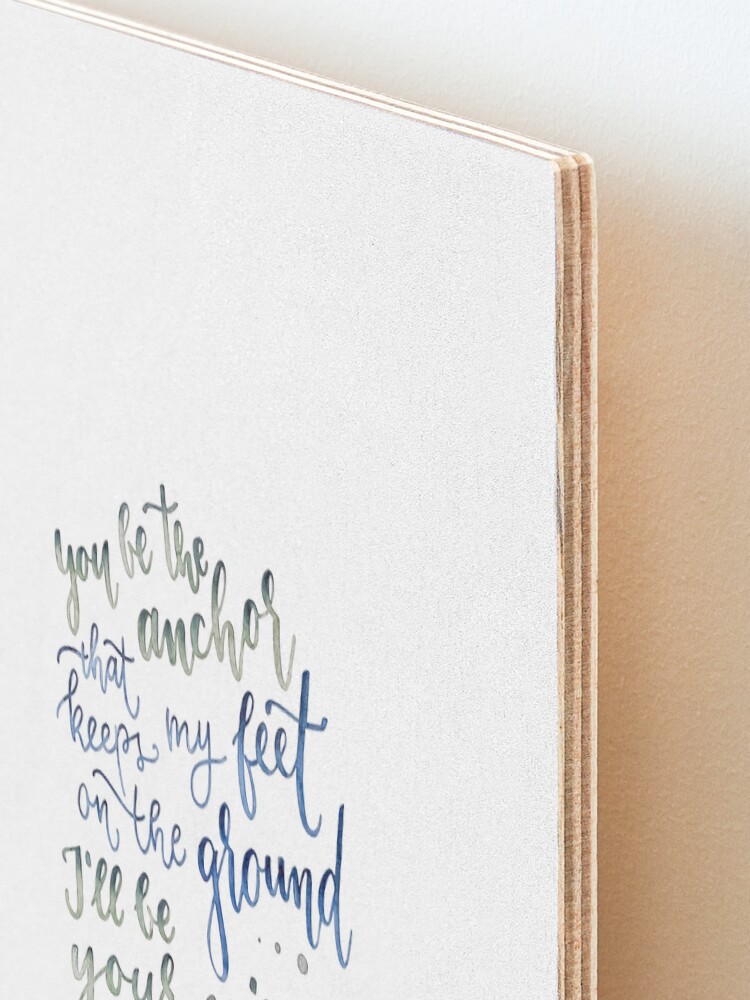 you be the
anchor
that
keeps my feet
on the ground
I'll be
your